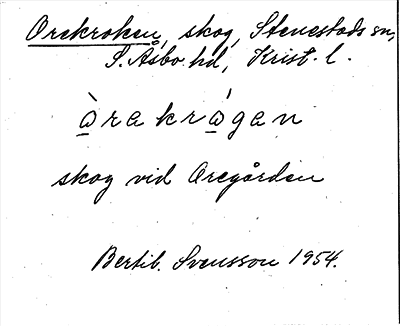 Orekroken, skog, Stenestads sn,
S. Åsbo hd, Krist. l.
òrekrógen
skog vid Oregården
Bertil Svensson 1954.